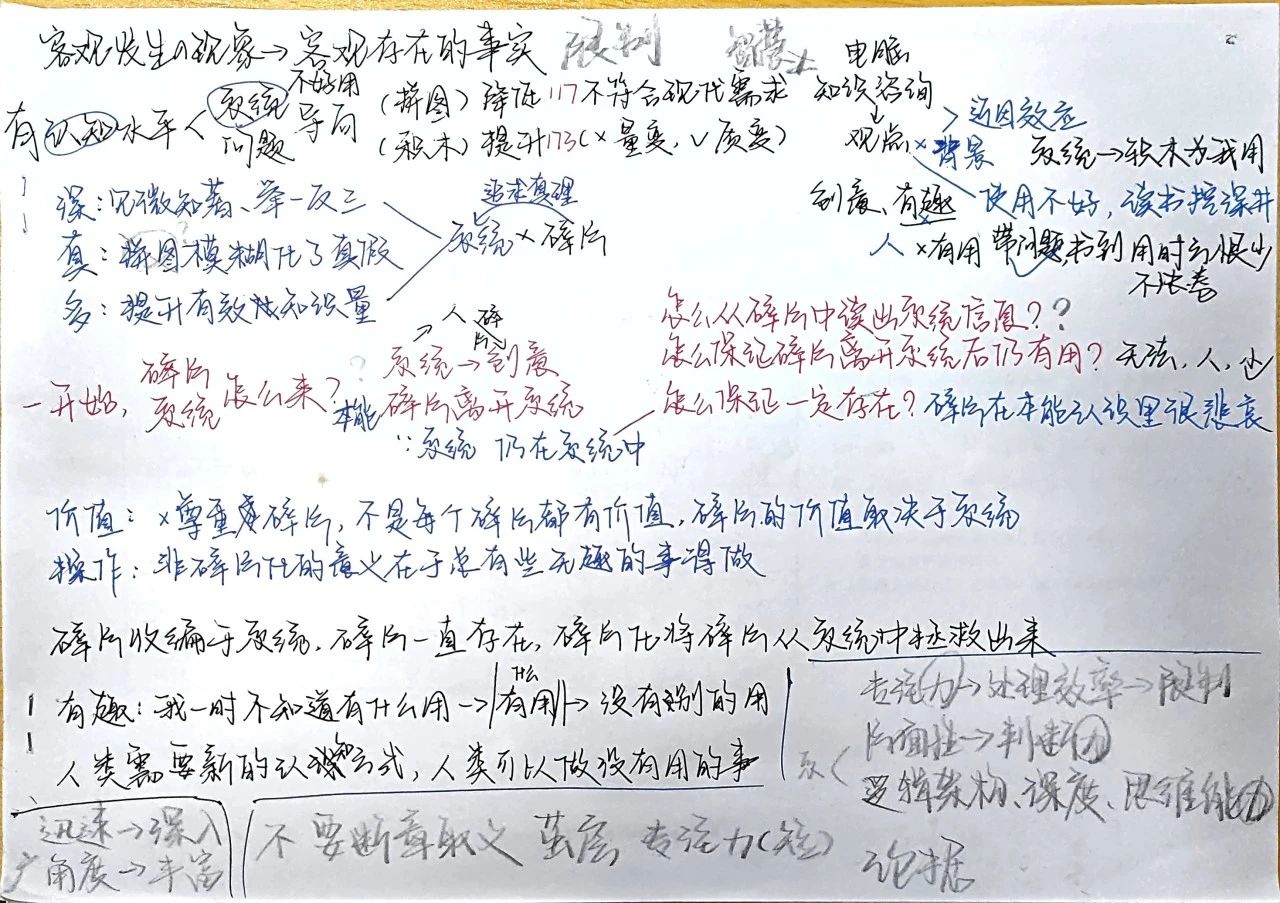 客观发生の现象→客观存在的事实 限制 电脑
不好用 (拼图) 降低117不符合现代需求 知识咨询
有认知水平< 系统 导向 > 近因效应
问题 (积木) 提升173(×量变,√质变) 观点 × 背景 系统→积木为我用
深:见微知著、举一反三 追求真理 创意、有趣 使用不好,读书挖深井
真:拼图模糊化了真假 系统×碎片 人 ×有用 带问题,书到用时方恨少
多:提升有效性知识量 不焦虑
→人 碎片 怎么从碎片中读出系统信息??
碎片 ? 系统→刻意 怎么保证碎片离开系统后仍有用?无法,人,也
一开始, 系统 怎么来? 本能 碎片离开系统 怎么保证一定存在?碎片在本能认识里很悲哀
∵系统 仍在系统中
价值:×尊重碎片,不是每个碎片都有价值,碎片的价值取决于系统
操作:非碎片化的意义在于总有些无趣的事得做
碎片收编于系统,碎片一直存在,碎片化将碎片从系统中拯救出来
什么
有趣:我一时不知道有什么用→|有用|→没有特别的用
人类需要新的认知方式,人类可以做没有用的事
专注力→处理效率→限制
片面性→判断力
反< 逻辑架构、深度、思维能力
论据
迅速→深入
广角度→丰富
不要断章取义 茧房 专注力(短)